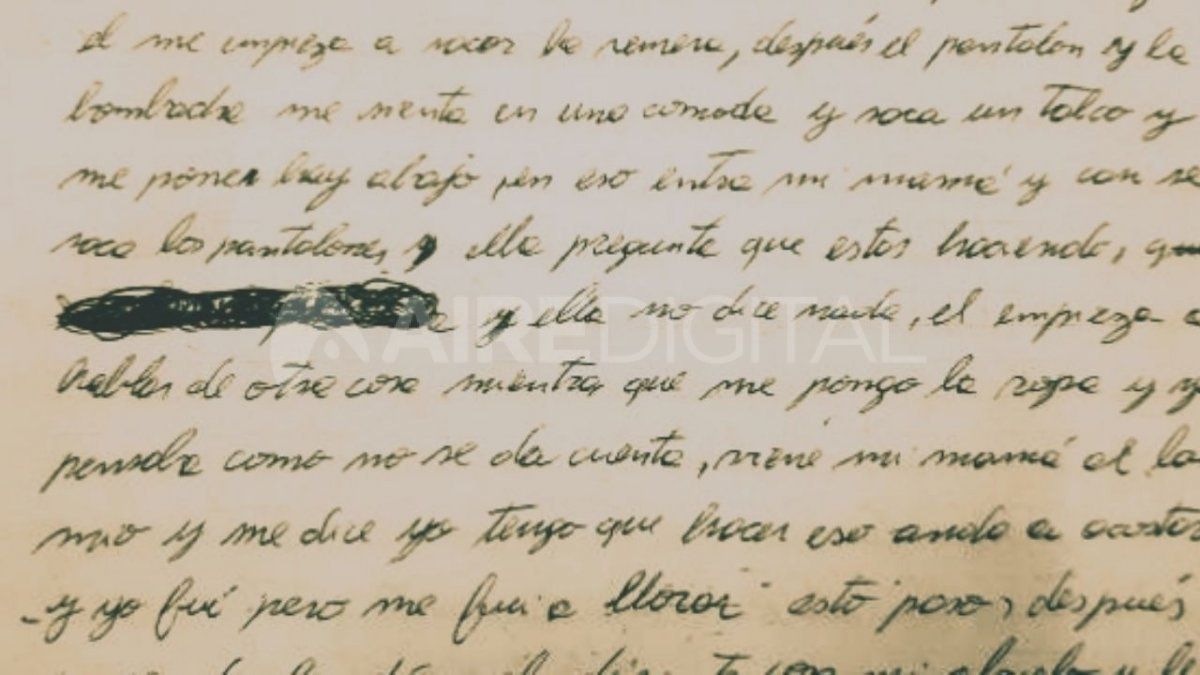 el me empieza a sacar la remera, después el pantalon y la
bombacha me sienta en una comoda y saca un talco y
me pone hay abajo, en eso entra mi mamá y con se
saca los pantalones, y ella pregunta que estas haciendo,
y ella no dice nada, el empieza a
hablar de otra cosa mientras que me pongo la ropa y y
pensaba como no se da cuenta, viene mi mamá al la
mio y me dice yo tengo que hacer eso anda a acostar
y yo fui pero me fui a llorar esto paso, después
AIREDIGITAL